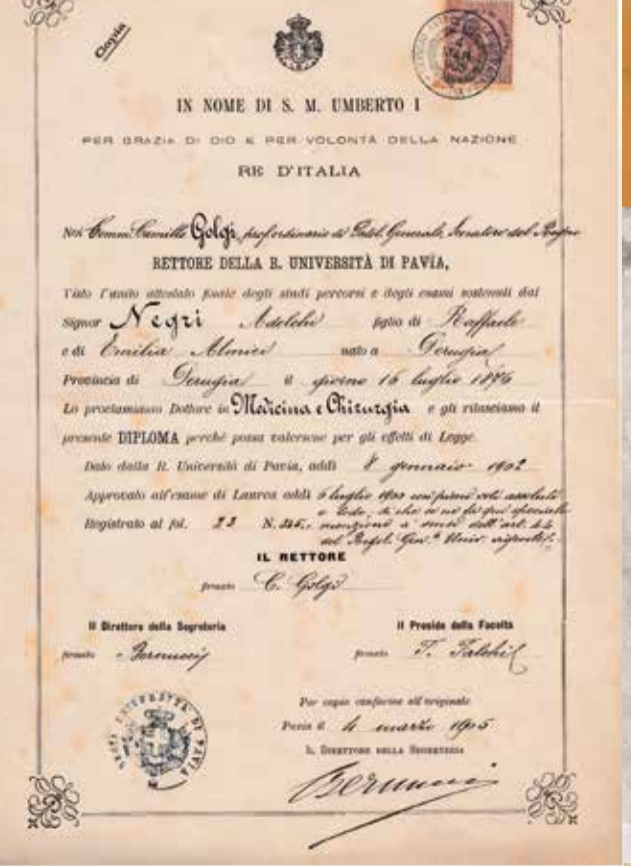 Copia
IN NOME DI S. M. UMBERTO I
PER GRAZIA DI DIO E PER VOLONTÀ DELLA NAZIONE
RE D'ITALIA
Noi Comm. Camillo Golgi, prof. ordinario di Patol. Generale, Senatore del Regno
RETTORE DELLA R. UNIVERSITÀ DI PAVIA,
Visto l'unito attestato finale degli studi percorsi e degli esami sostenuti dal
Signor Negri Adelchi figlio di Raffaele
e di Emilia Almici nato a Perugia
Provincia di Perugia il giorno 16 luglio 1876
Lo proclamiamo Dottore in Medicina e Chirurgia e gli rilasciamo il
presente DIPLOMA perchè possa valersene per gli effetti di Legge.
Dato dalla R. Università di Pavia, addì 8 gennaio 1902
Approvato all'esame di Laurea addì 6 luglio 1900 con pieni voti assoluti
e lode, di che se ne fa qui speciale
Registrato al fol. 23 N. 345, menzione a senso dell'art. 44
del Regol. Gen.e Univ.
IL RETTORE
firmato C. Golgi
Il Direttore della Segreteria
Il Preside della Facoltà
firmato Bernucci
firmato T. Falchi
Per copia conforme all'originale
Pavia il 4 marzo 1905
IL DIRETTORE DELLA SEGRETERIA
Bernucci
UNIVERSITÀ DI PAVIA